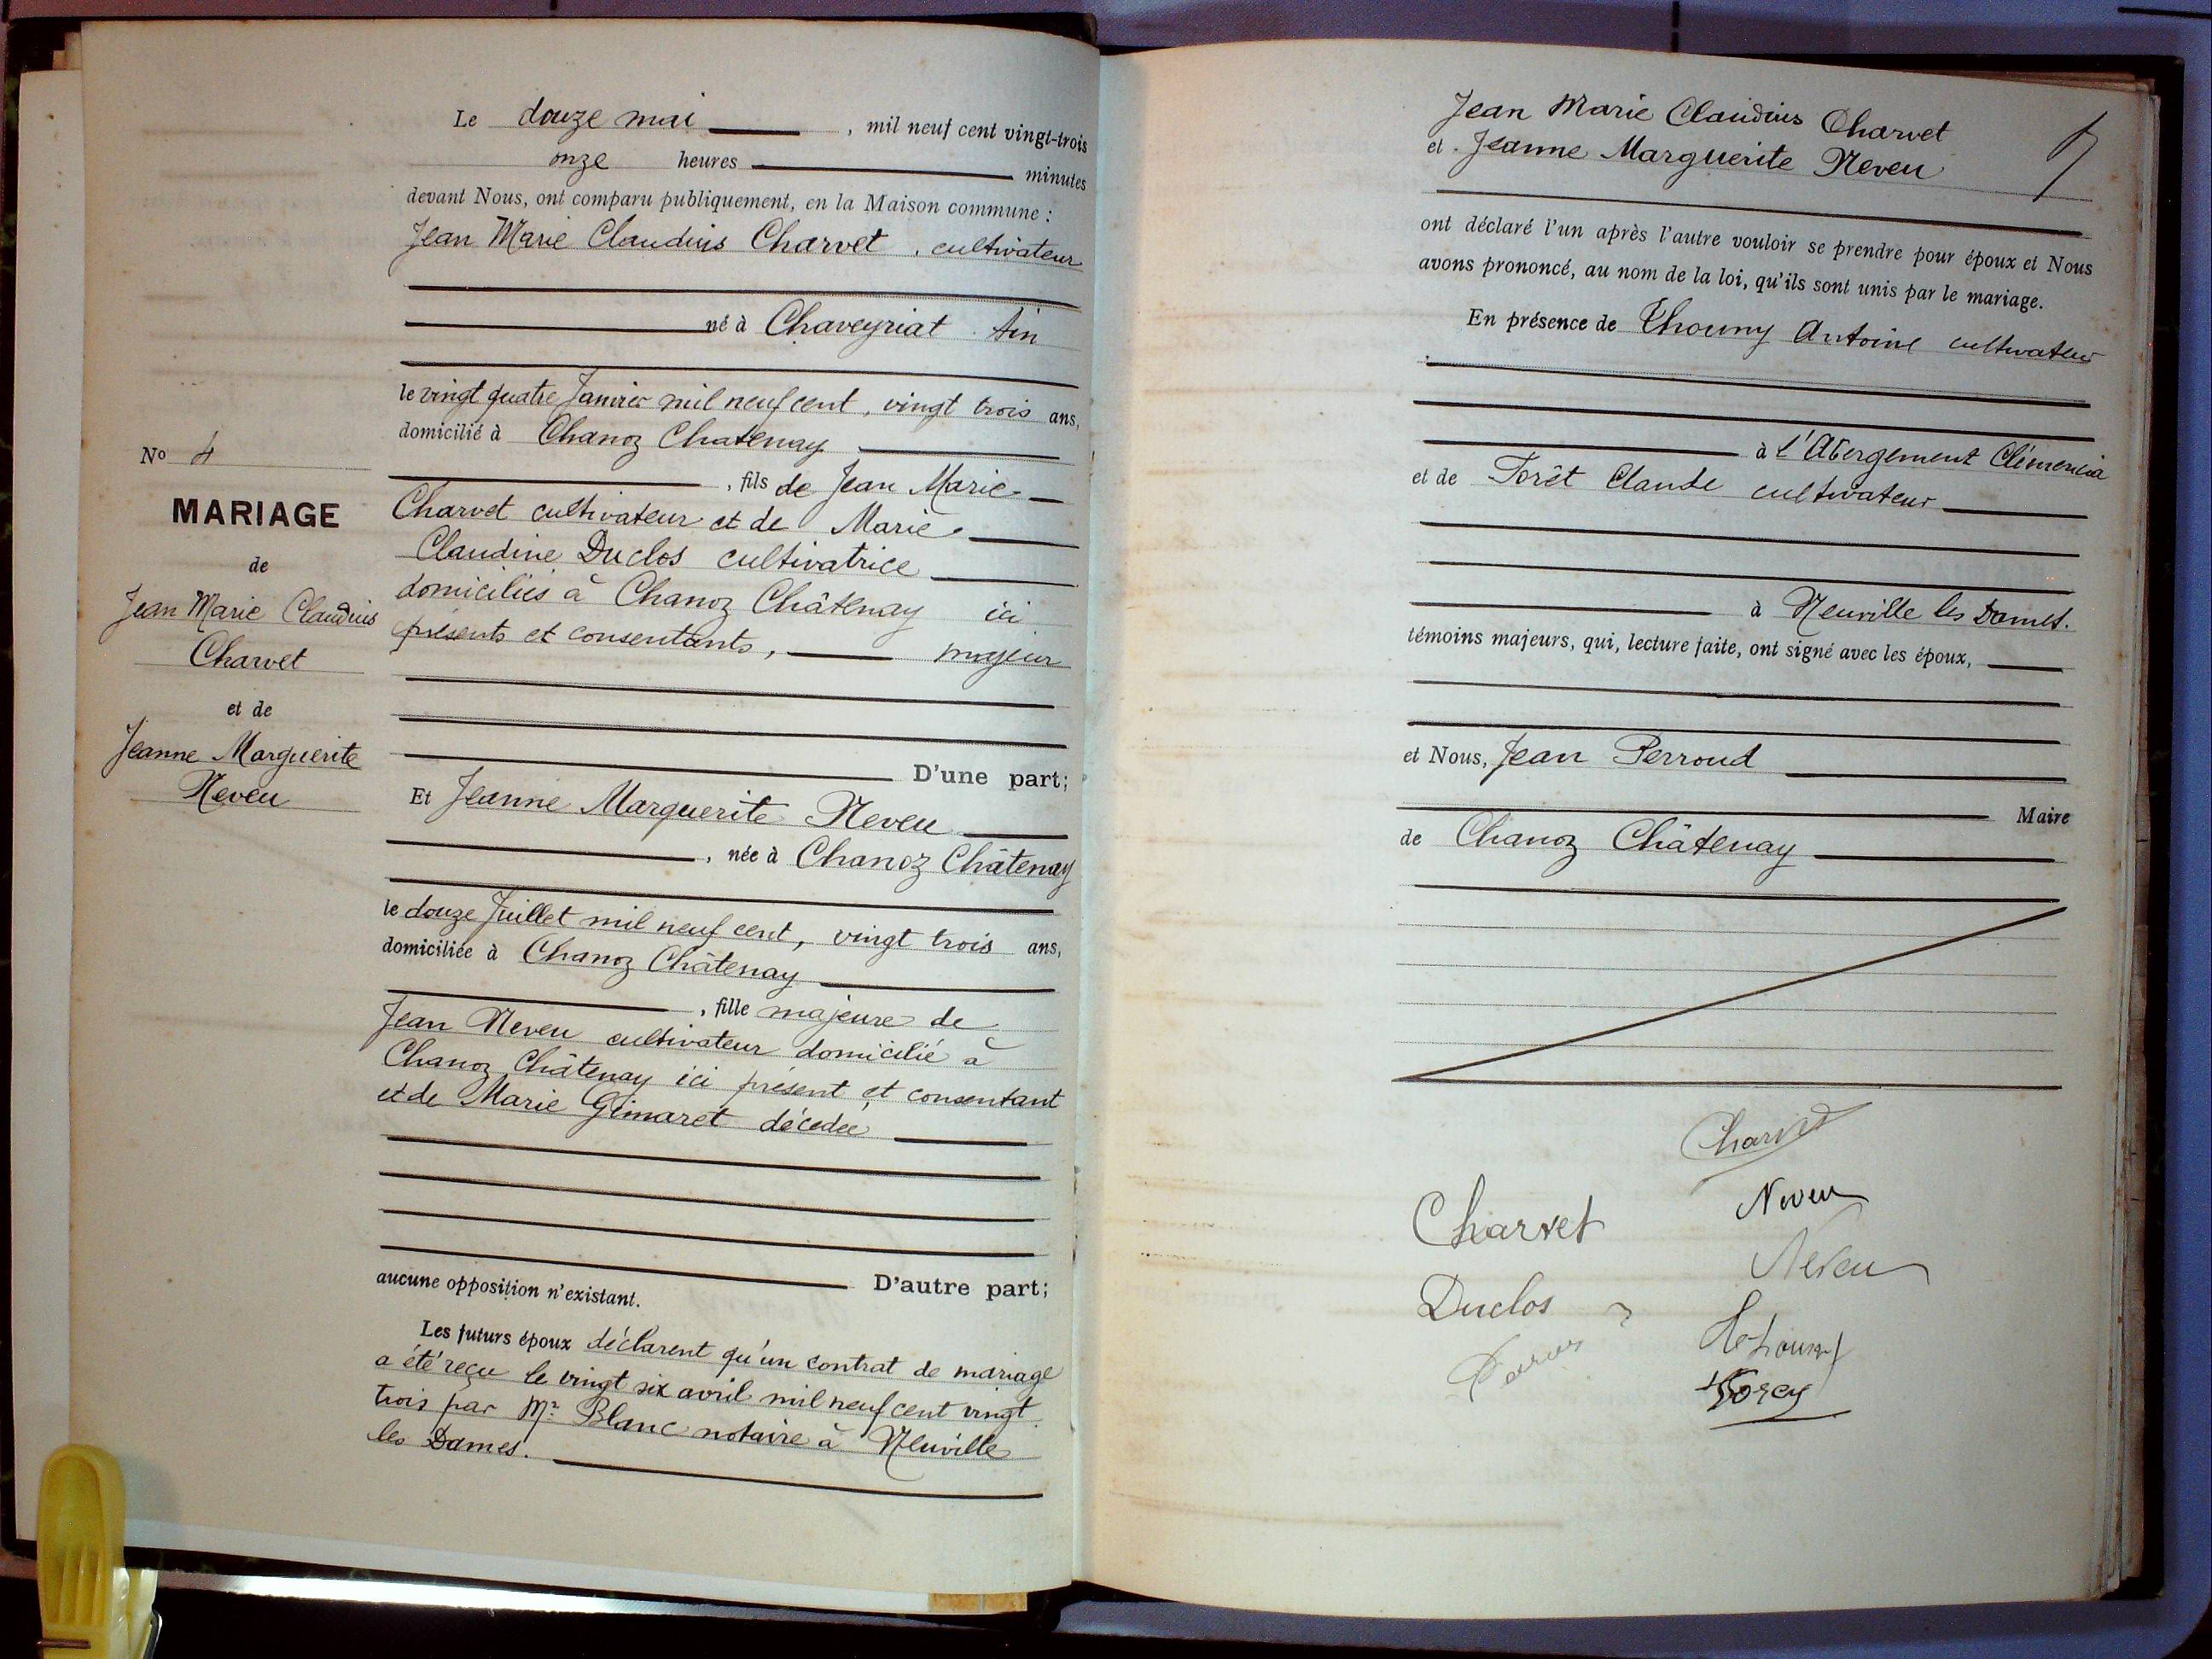 Le douze mai , mil neuf cent vingt-trois
onze heures minutes
devant Nous, ont comparu publiquement, en la Maison commune :
Jean Marie Claudius Charvet , cultivateur
né à Chaveyriat Ain
le vingt quatre Janvier mil neuf cent, vingt trois ans,
domicilié à Chanoz Chatenay
, fils de Jean Marie
Charvet cultivateur et de Marie
Claudine Duclos cultivatrice
domiciliés à Chanoz Châtenay ici
présents et consentants, majeur
D'une part;
Et Jeanne Marguerite Neveu
, née à Chanoz Châtenay
le douze Juillet mil neuf cent, vingt trois ans,
domiciliée à Chanoz Châtenay
, fille majeure de
Jean Neveu cultivateur domicilié à
Chanoz Châtenay ici présent et consentant
et de Marie Gimaret décedée
D'autre part;
aucune opposition n'existant.
Les futurs époux déclarent qu'un contrat de mariage
a été reçu le vingt six avril mil neuf cent vingt
trois par Mr Blanc notaire à Neuville
les Dames.
No 4
MARIAGE
de
Jean Marie Claudius
Charvet
et de
Jeanne Marguerite
Neveu
Jean Marie Claudius Charvet
et Jeanne Marguerite Neveu
ont déclaré l'un après l'autre vouloir se prendre pour époux et Nous
avons prononcé, au nom de la loi, qu'ils sont unis par le mariage.
En présence de Thouny Antoine cultivateur
à l'Abergement Clémencia
et de Forêt Claude cultivateur
à Neuville les Dames.
témoins majeurs, qui, lecture faite, ont signé avec les époux,
et Nous, Jean Perroud
Maire
de Chanoz Châtenay
Charvet
Neveu
Charvet
Neveu
Duclos